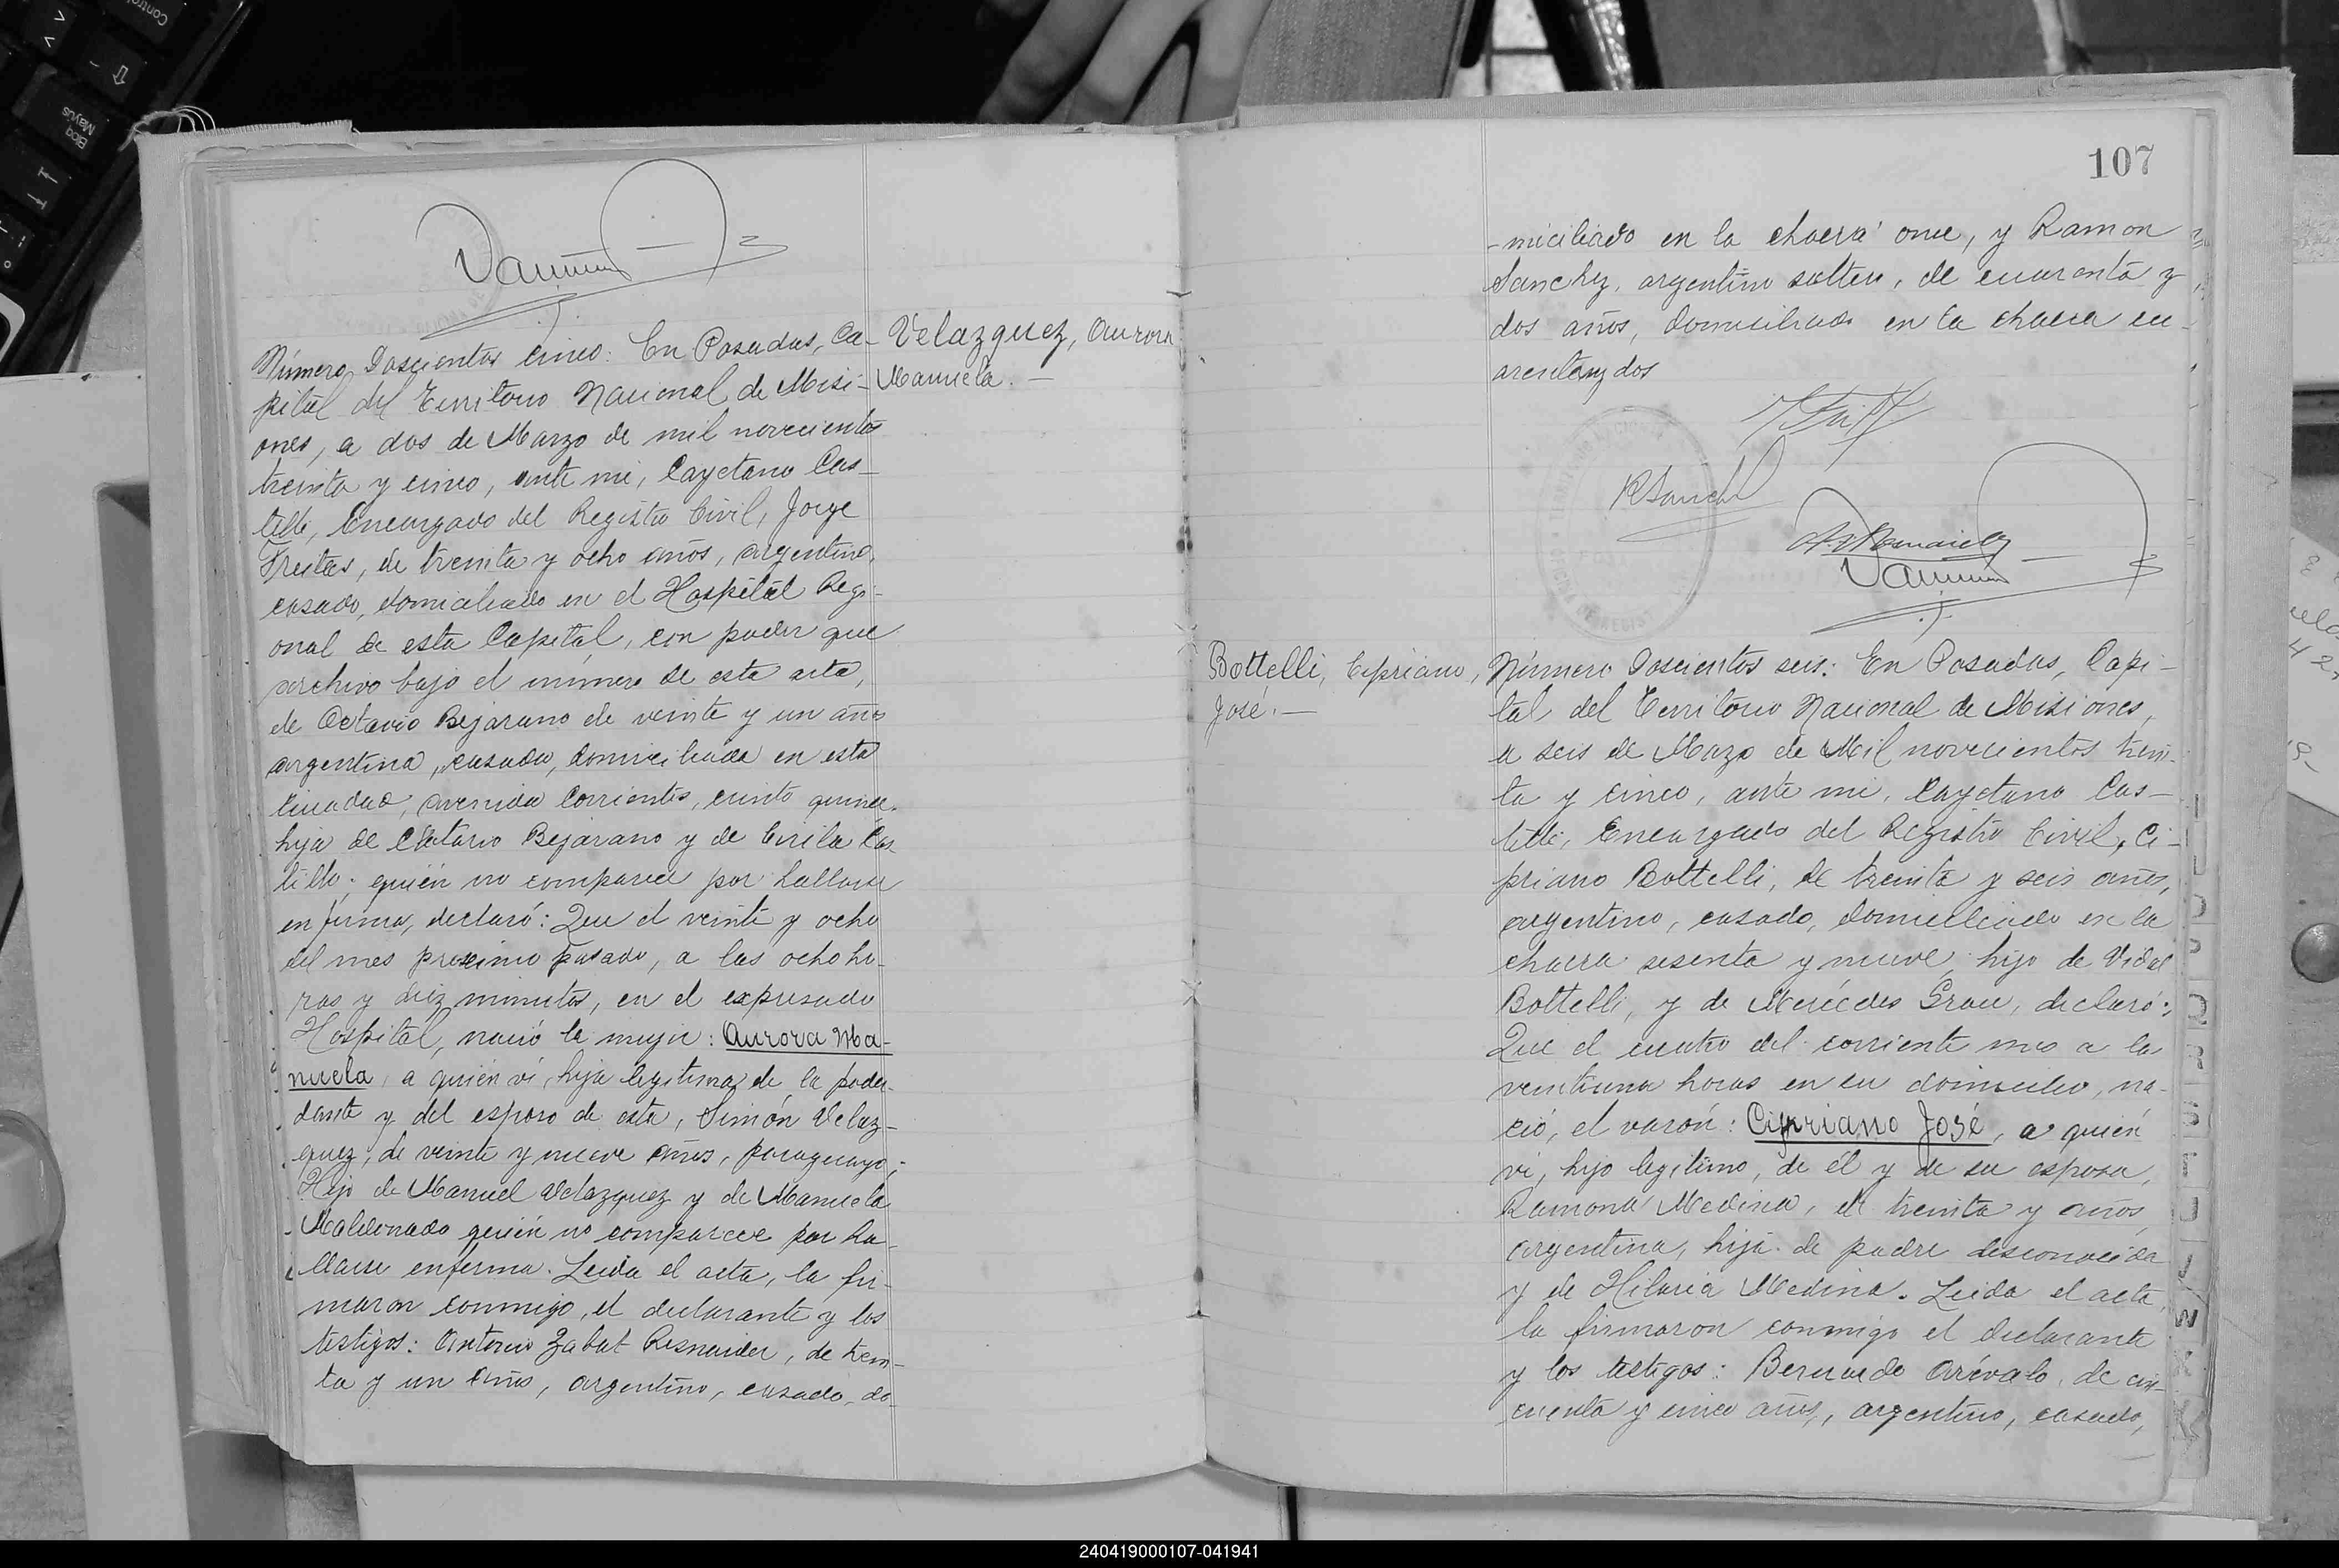 Velazquez, Aurora
Manuela. —
Número Doscientos cinco: En Posadas, Ca-
pital del Territorio Nacional de Misi-
ones, a dos de Marzo de mil novecientos
treinta y cinco, ante mi, Cayetano Cas-
telli, Encargado del Registro Civil, Jorge
Freites, de treinta y ocho años, argentino,
casado, domiciliado en el Hospital Regi-
onal de esta Capital, con poder que
archivo bajo el número de esta acta,
de Octavio Bejarano de veinte y un años
argentina, casada, domiciliada en esta
ciudad, avenida Corrientes, ciento quince.
hija de Octavio Bejarano y de Cirila Cas-
tillo; quién no comparece por hallarse
enferma, declaró: Que el veinte y ocho
del mes proximo pasado, a las ocho ho-
ras y diez minutos, en el expresado
Hospital, nació la mujer: Aurora Ma-
nuela, a quién vi, hija legitima de la poder-
dante y del esposo de esta, Simón Velaz-
quez, de veinte y nueve años, paraguayo;
Hijo de Manuel Velazquez y de Manuela
Maldonado quién no comparece por ha-
llarse enferma. Leida el acta, la fir-
maron conmigo, el declarante y los
testigos: Antonio Zabat Resnaider, de trein-
ta y un años, argentino, casado, do-
107
-miciliado en la chacra once, y Ramon
Sanchez, argentino soltero, de cuarenta y
dos años, domiciliado en la chacra cu-
arenta y dos
Bottelli, Cipriano,
José. —
Número Doscientos seis: En Posadas, Capi-
tal, del Territorio Nacional de Misiones,
a seis de Marzo de Mil novecientos trein-
ta y cinco, ante mi, Cayetano Cas-
telli, Encargado del Registro Civil, Ci-
priano Bottelli, de treinta y seis años,
argentino, casado, domiciliado en la
chacra sesenta y nueve, hijo de Vidal
Bottelli, y de Mercédes Grau, declaró:
Que el cuatro del corriente mes a las
veintiuna horas en su domicilio, na-
ció, el varón: Cipriano José, a quién
vi, hijo legitimo, de él y de su esposa,
Ramona Medina, de treinta y años,
argentina, hija de padre desconocido
y de Hilaria Medina. Leida el acta,
la firmaron conmigo el declarante
y los testigos: Bernardo Arévalo, de cin-
cuenta y cinco años, argentino, casado,
240419000107-041941